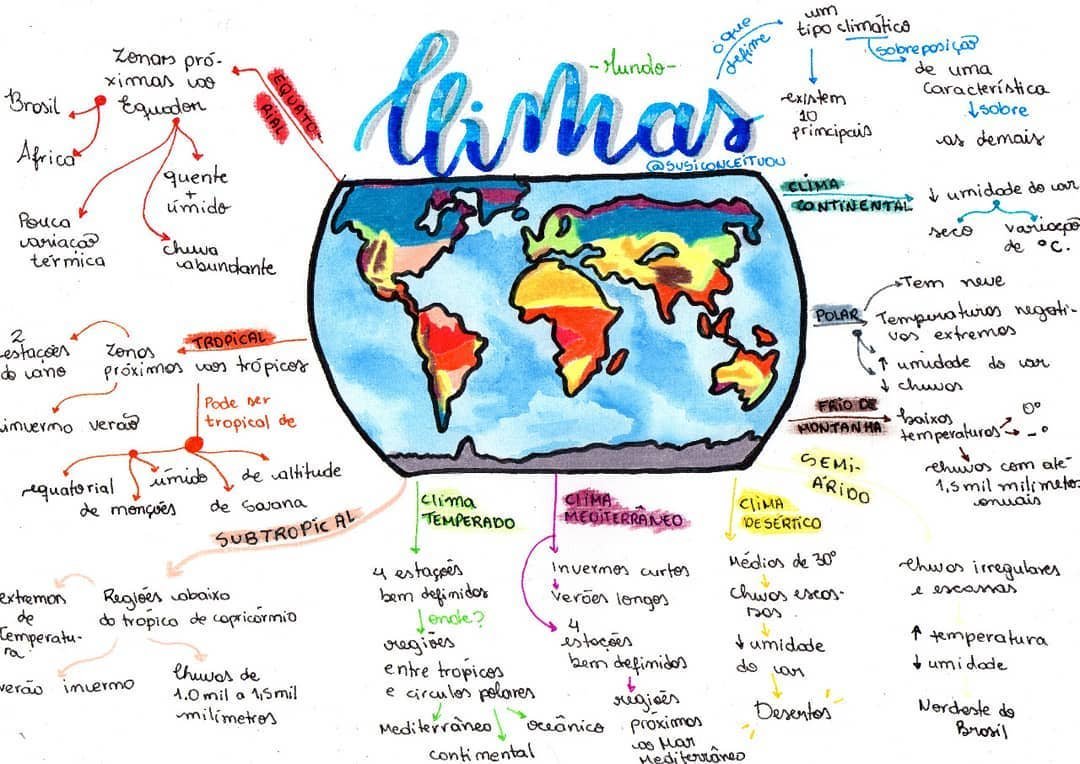 Climas
-Mundo-
@SUSICONCEITUOU
o que
define
um
tipo climático
existem
10
principais
sobreposição
de uma
característica
sobre
as demais
EQUATO-
RIAL
Zonas pró-
ximas ao
Equador
Brasil
África
Pouca
variação
térmica
quente
+
úmido
chuva
abundante
TROPICAL
Zonas
próximas aos trópicos
2
estações
do ano
inverno verão
Pode ser
tropical de
equatorial
de monções
úmido
de Savana
de altitude
SUBTROPICAL
Regiões abaixo
do trópico de capricórnio
extremos
de
Temperatu-
ra
verão inverno
Chuvas de
1.0 mil a 1,5 mil
milímetros
Clima
TEMPERADO
4 estações
bem definidas
onde?
regiões
entre trópicos
e círculos polares
Mediterrâneo
continental
oceânico
CLIMA
MEDITERRÂNEO
Invernos curtos
verões longos
4
estações
bem definidas
regiões
próximas
ao Mar
Mediterrâneo
CLIMA
DESÉRTICO
Médias de 30°
Chuvas escas-
sas
↓ umidade
do ar
Desertos
SEMI-
ÁRIDO
Chuvas irregulares
e escassas
↑ temperatura
↓ umidade
Nordeste do
Brasil
CLIMA
CONTINENTAL
↓ umidade do ar
seco
variação
de °C.
POLAR
Tem neve
Temperaturas negati-
vas extremas
↑ umidade do ar
↓ chuvas
FRIO DE
MONTANHA
baixas
temperaturas
0°
-°
Chuvas com até
1,5 mil milímetros
anuais